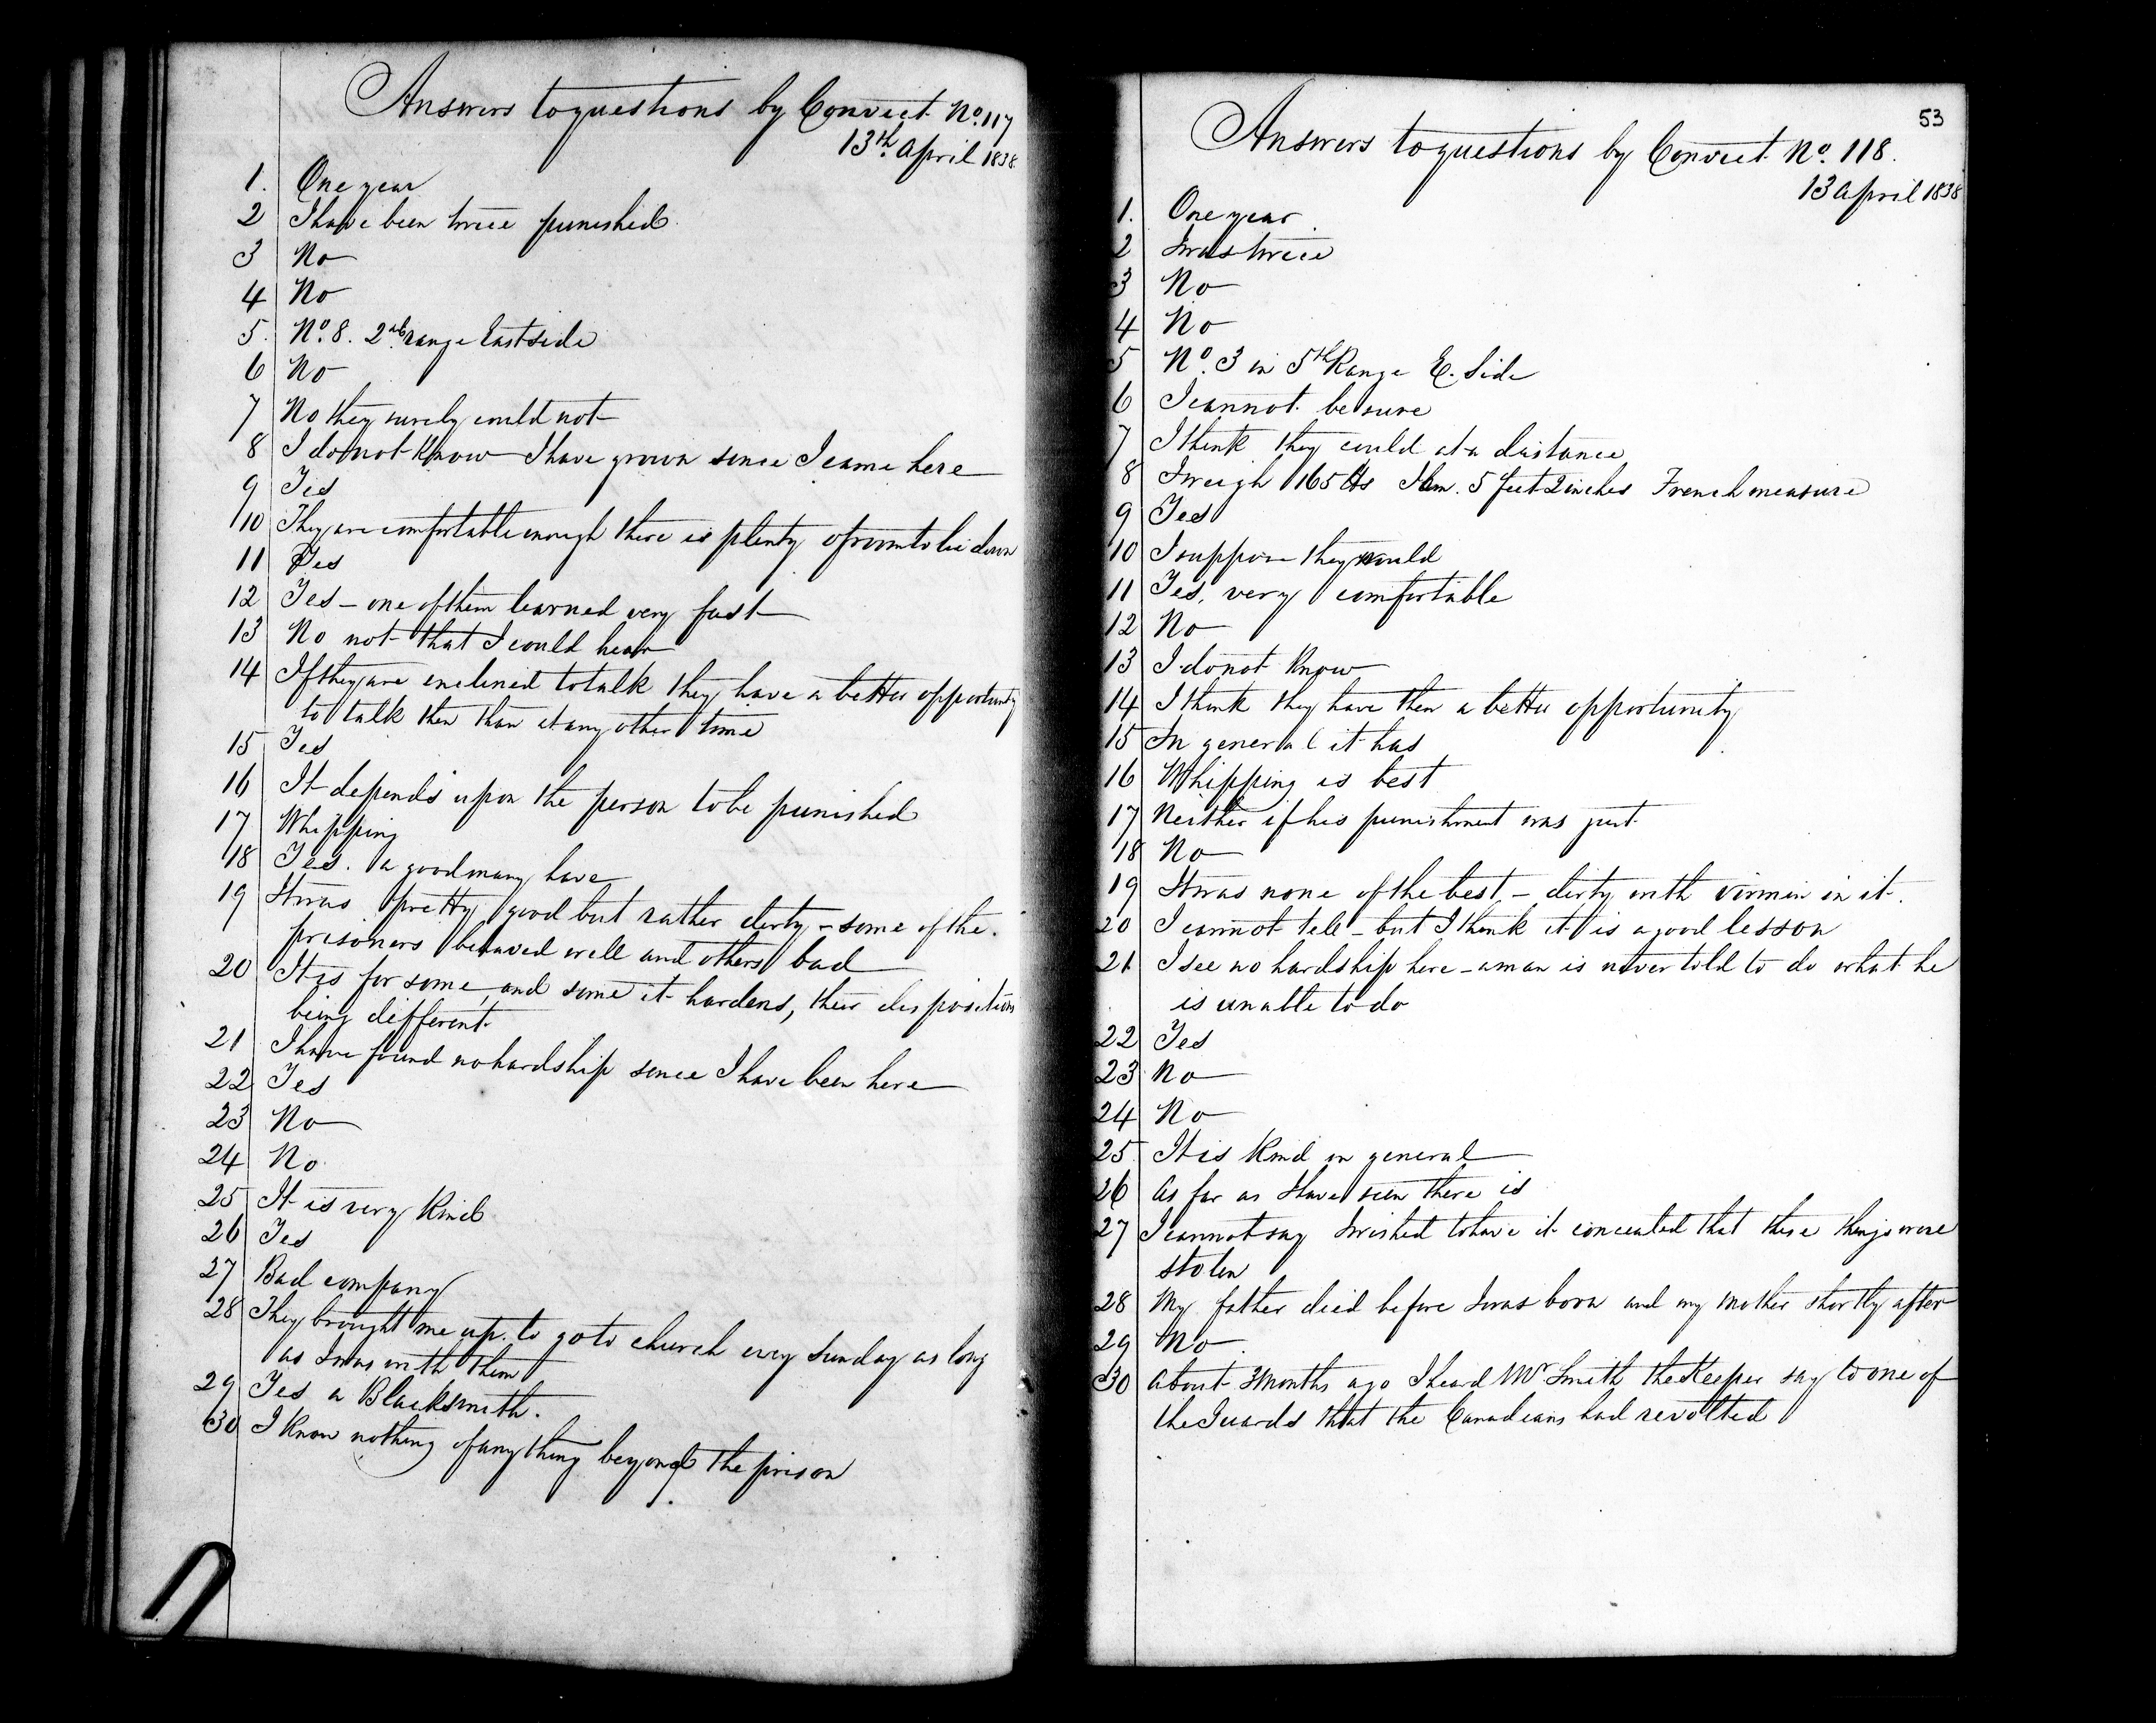 Answers to questions by Convict No. 117
13th April 1838
1. One year
2 I have been twice punished
3 No
4 No
5. No. 8. 2nd range East side
6 No
7 No they surely could not
8 I do not know I have grown since I came here
9 Yes
10 They are comfortable enough there is plenty of room to lie down
11 Yes
12 Yes - one of them learned very fast
13 No not that I could hear
14 If they are enclined to talk they have a better opportunity
to talk then than at any other time
15 Yes
16 It depends upon the person to be punished
17 Whipping
18 Yes. a good many have
19 It was pretty good but rather dirty - some of the
prisoners behaved well and others bad
20 It is for some, and some it hardens, their disposition
being different
21 I have found no hardship since I have been here
22 Yes
23 No
24 No
25 It is very kind
26 Yes
27 Bad company
28 They brought me up. to go to church every Sunday as long
as I was with them
29 Yes a Blacksmith.
30 I know nothing of any thing beyond the prison
53
Answers to questions by Convict No. 118.
13 April 1838
1. One year
2 I was twice
3 No
4 No
5 No. 3 in 5th Range E. Side
6 I cannot be sure
7 I think they could at a distance
8 I weigh 165 lbs I am. 5 feet 2 inches French measure
9 Yes
10 I suppose they would
11 Yes, very comfortable
12 No
13 I do not know
14 I think they have then a better opportunity
15 In general it has
16 Whipping is best
17 Neither if his punishment was just
18 No
19 It was none of the best - dirty with virmin in it.
20 I cannot tell - but I think it is a good lesson
21 I see no hardship here - a man is never told to do what he
is unable to do
22 Yes
23 No
24 No
25 It is kind in general
26 As far as I have seen there is
27 I cannot say I wished to have it concealed that these things were
stolen
28 My father died before I was born and my mother shortly after
29 No
30 About 3 months ago I heard Mr Smith the Keeper say to one of
the Guards that the Canadians had revolted